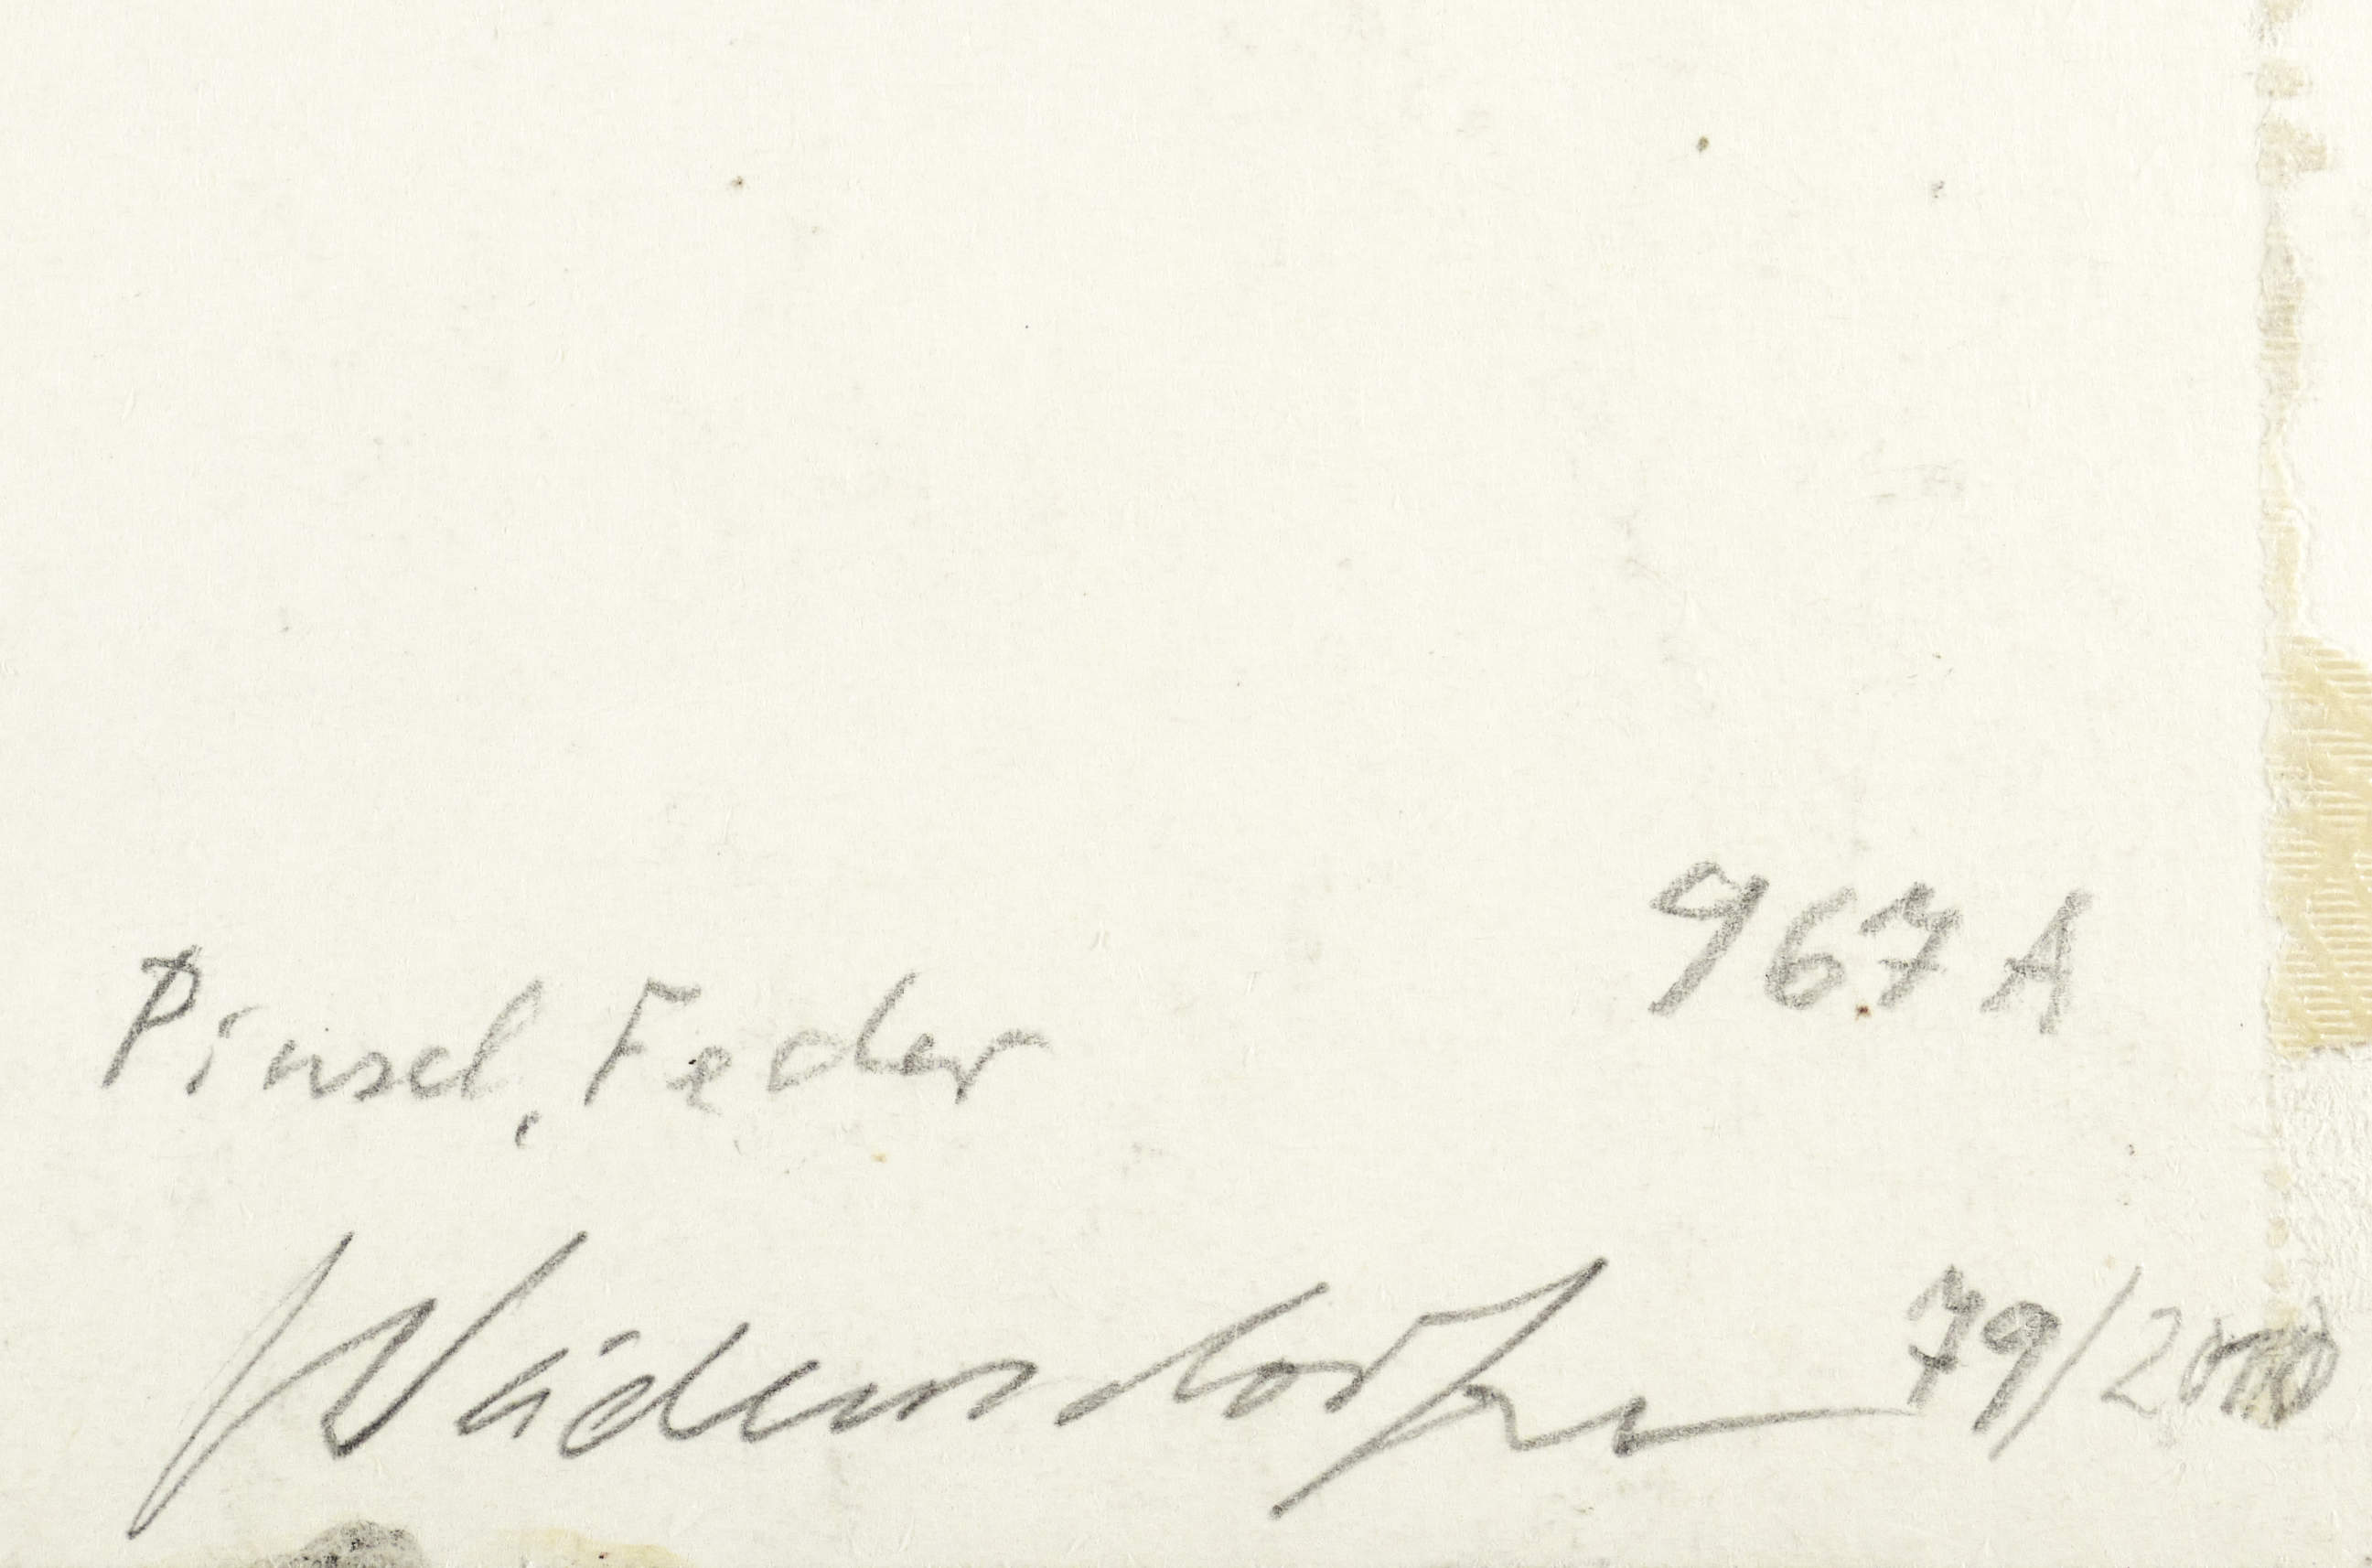 967 A
Pinsel, Feder
Weidensdorfer 79/2000